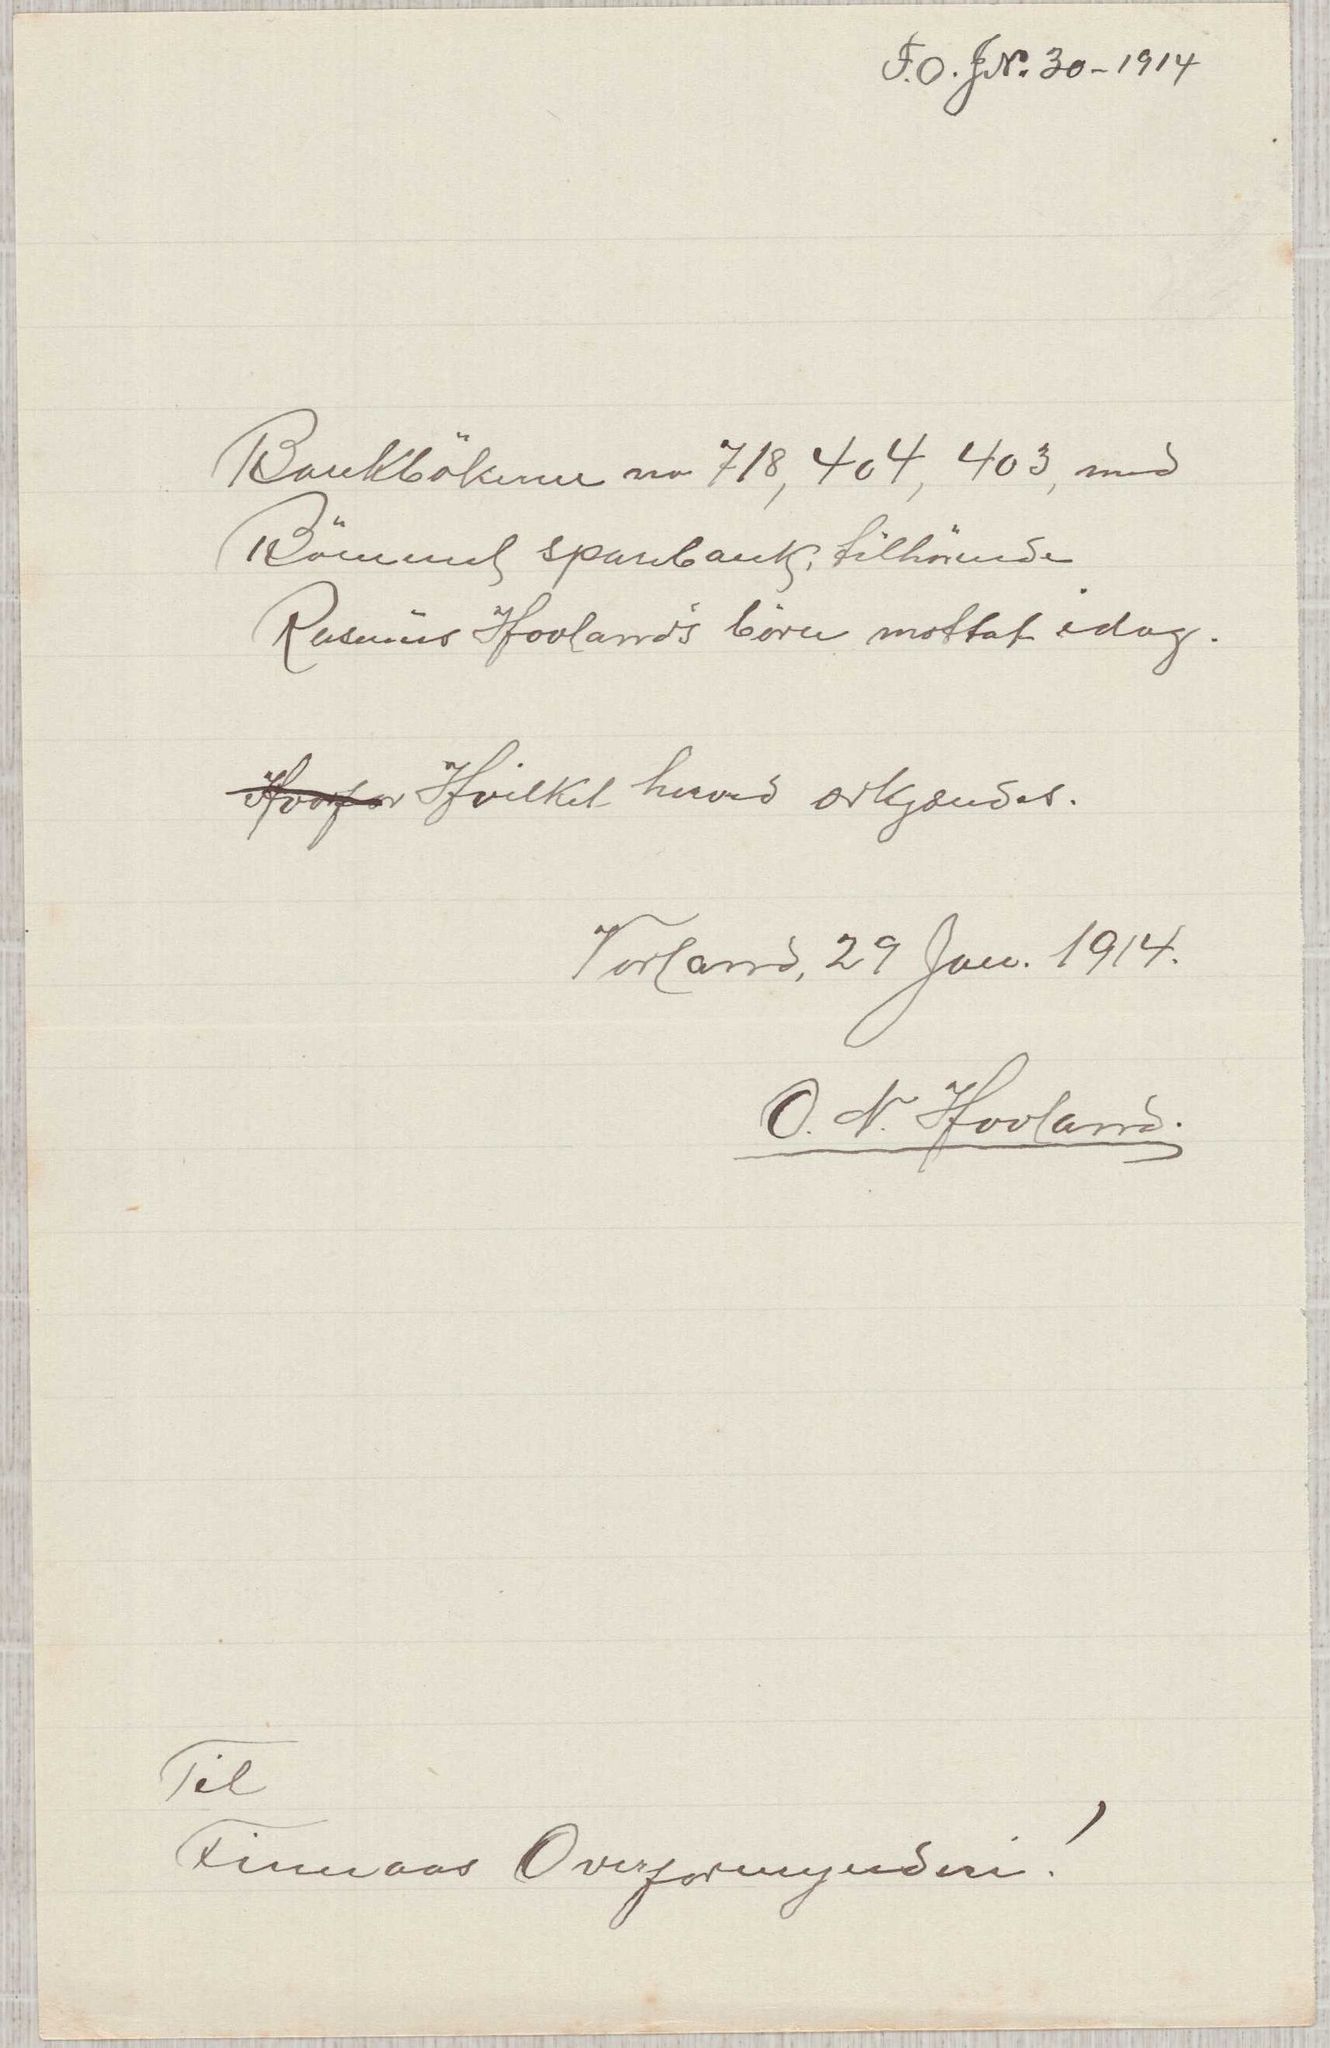 F.O. JN. 30-1914
Bankbökerne no 718, 404, 403, med
Bömmel sparebank, tilhörende
Rasmus Hovland's börn mottat idag.
Hvorfor Hvilket herved erkjendes.
Vorland, 29 Jan. 1914.
O. N. Hovland.
Til
Finnaas Overformynderi!